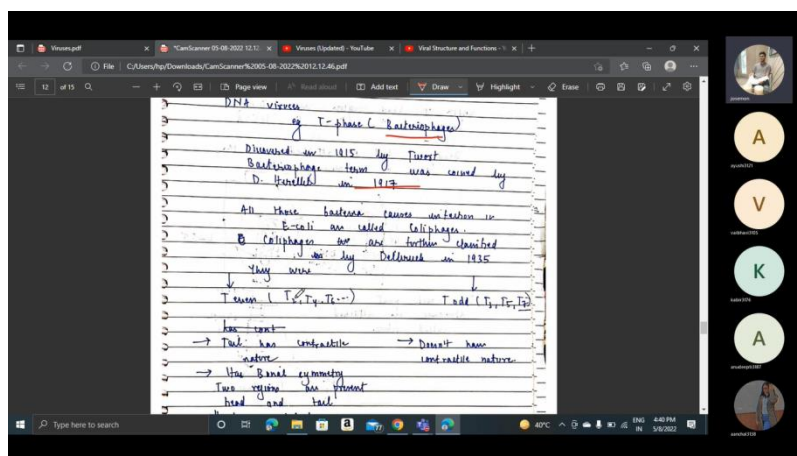 Viruses.pdf
*CamScanner 05-08-2022 12.12
Viruses (Updated) - YouTube
Viral Structure and Functions -
File
C:/Users/hp/Downloads/CamScanner%2005-08-2022%2012.12.46.pdf
12 of 15
Page view
Read aloud
Add text
Draw
Highlight
Erase
DNA viruses
eg T-phase ( Bacteriophages)
Discovered in 1915 by Twort
Bacteriophage term was coined by
D. Herelleh in 1917
All those bacteria causes infection in
E-coli are called Coliphages.
Coliphages are further classified
by Delbruck in 1935
They were
T even ( T2, T4, T6 ...)
T odd (T3, T5, T7)
has cont
→ Tail has contractile
nature
→ Doesn't have
contractile nature
→ Has Bonal symmetry
Two regions are present
head and tail
Type here to search
40°C
ENG
IN
4:40 PM
5/8/2022
A
V
K
A